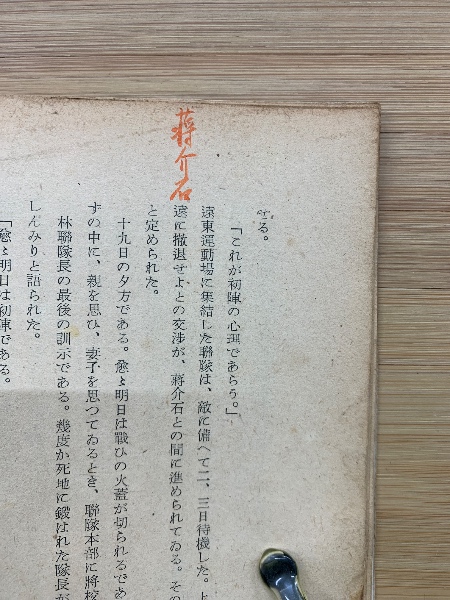 蒋介石
ぜる。
「これが初陣の心理であらう。」
遠東運動場に集結した聯隊は、敵に備へて二、三日待機した。
遠に撤退せよとの交渉が、蒋介石との間に進められてゐる。その
と定められた。
十九日の夕方である。愈〻明日は戰ひの火蓋が切られるであ
すの中に、親を思ひ、妻子を思つてゐるとき、聯隊本部に將校
林聯隊長の最後の訓示である。幾度か死地に鍛はれた隊長が
しんみりと語られた。
「愈〻明日は初陣である。